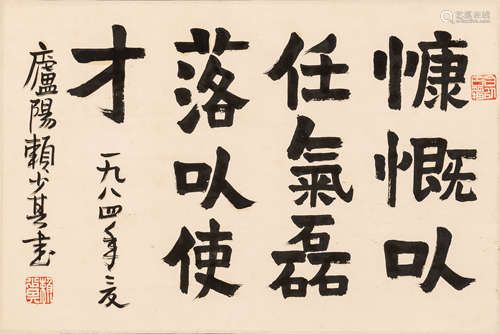 慷慨㕥
任氣磊
落㕥使
才
一九八四年三友
廬陽賴少其書